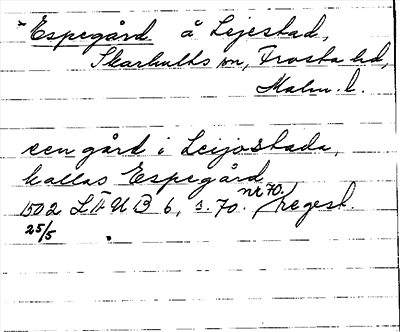 Espegård å Lejestad,
Skarhults sn, Frosta hd,
Malm. l.
een gård i Leijostada,
kallas Espegård
1502 LÄUB 6, s. 70. nr 70. /regest.
25/5